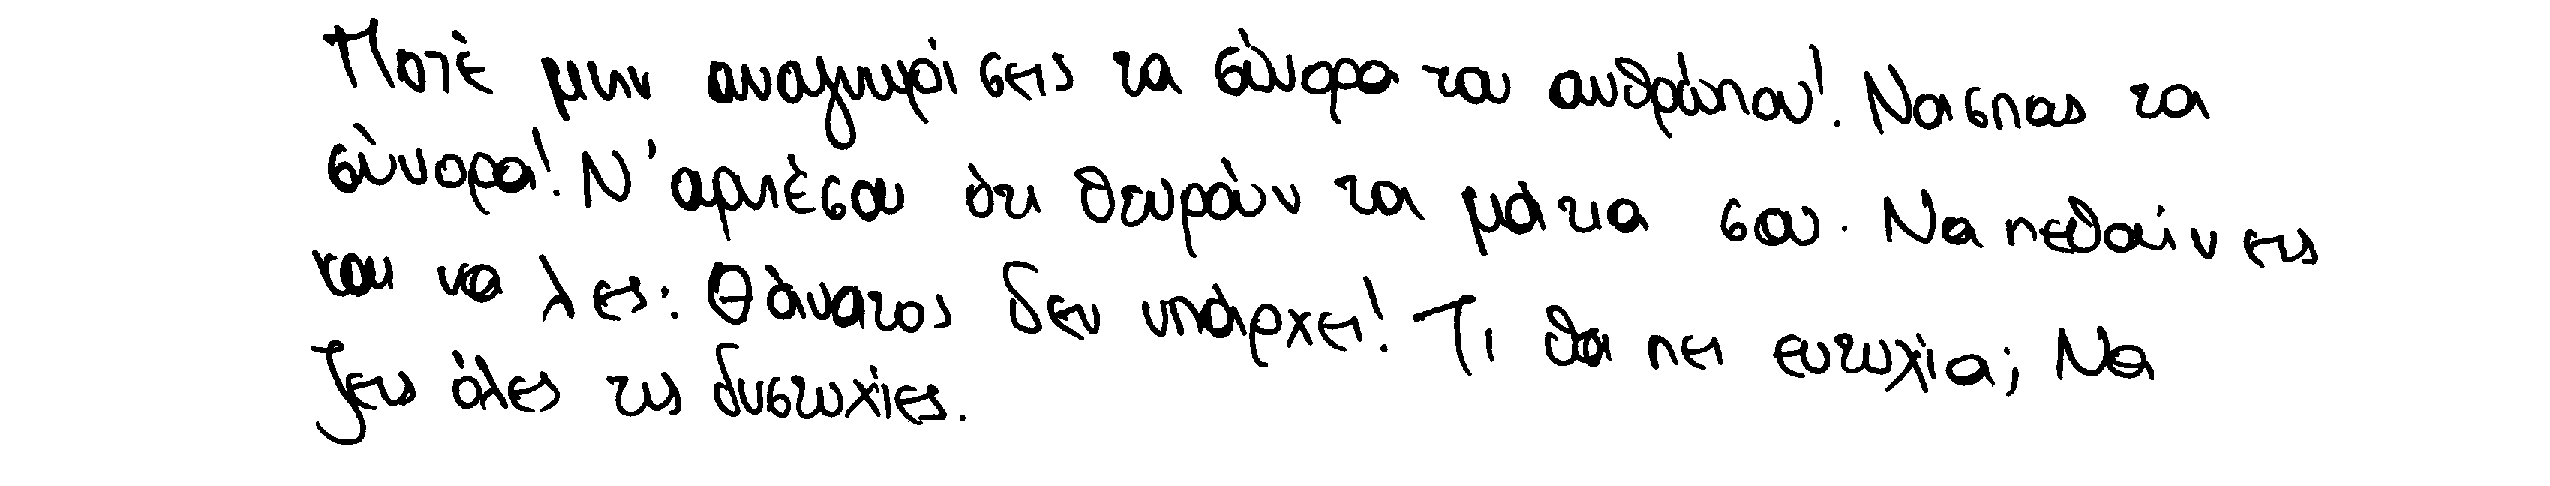 Ποτέ μην αναγνωρίσεις τα σύνορα του ανθρώπου! Να σπας τα
σύνορα! Ν' αρνιέσαι ότι θωρούν τα μάτια σου. Να πεθαίνεις
και να λες: Θάνατος δεν υπάρχει! Τι θα πει ευτυχία; Να
ζεις όλες τις δυστυχίες.